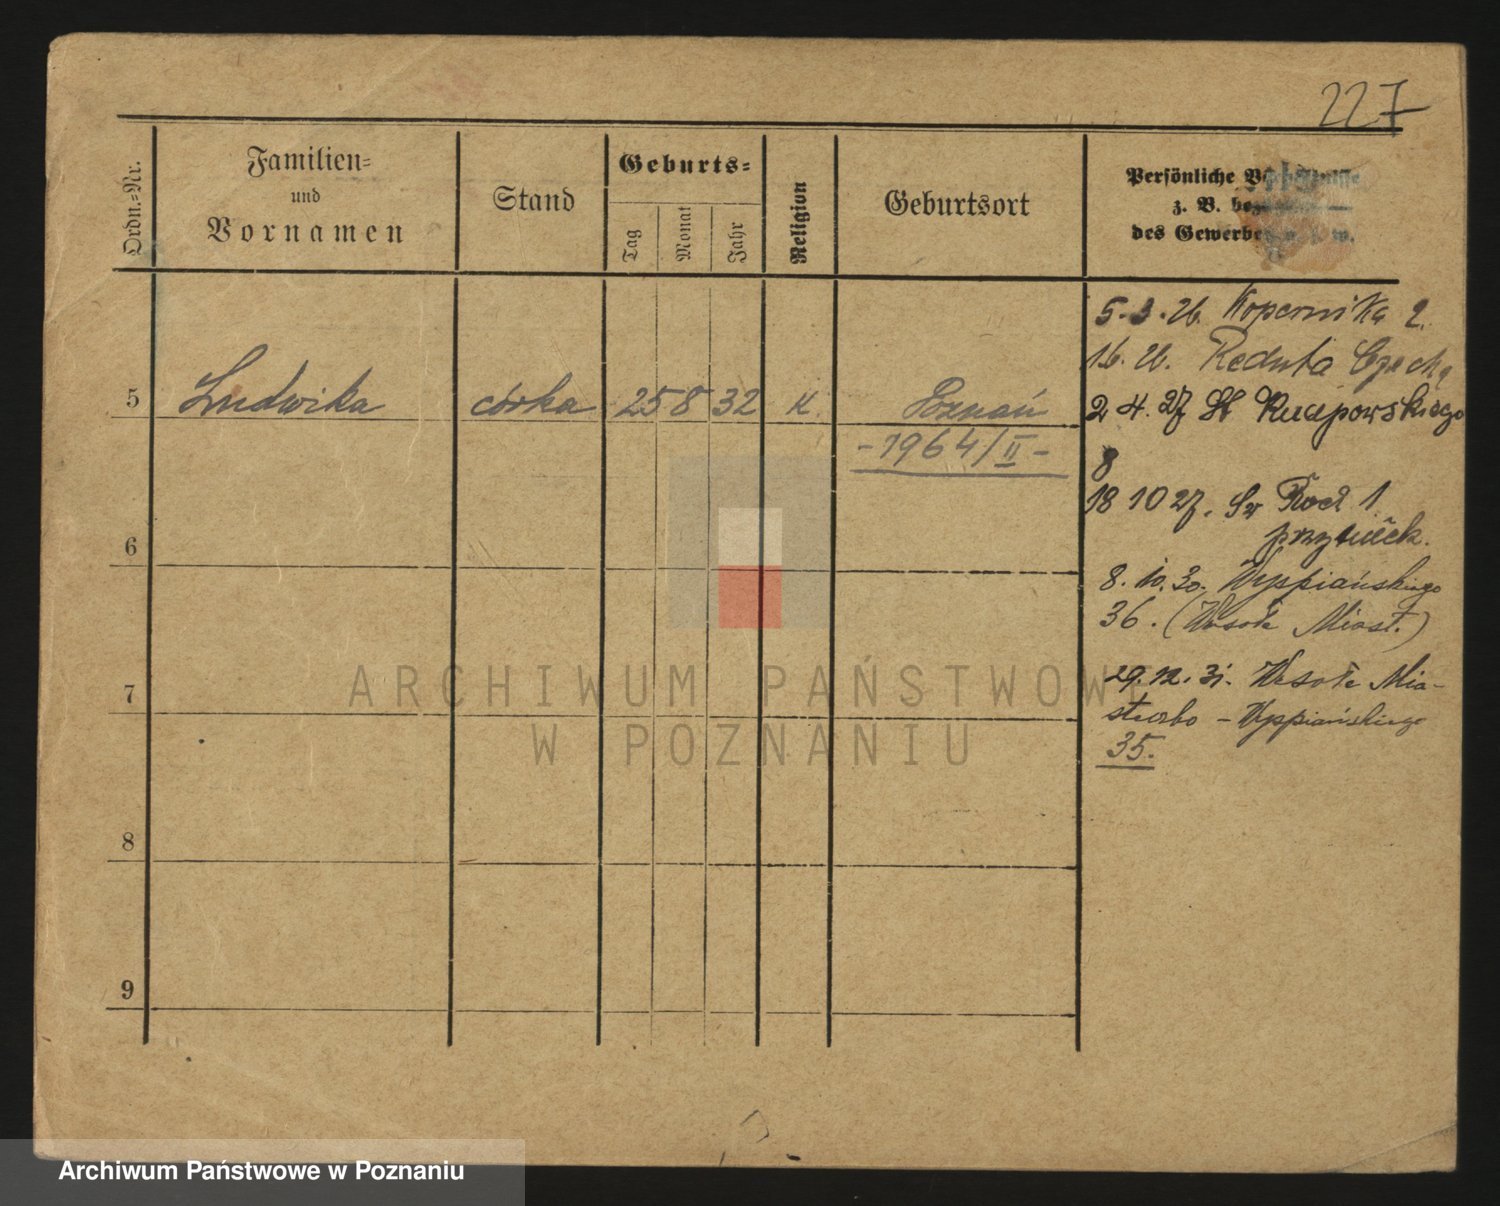 227
Ordn.=Nr.
Familien=
und
Vornamen
Stand
Geburts=
Tag
Monat
Jahr
Religion
Geburtsort
Persönliche
z. B.
des Gewerbes u. s. w.
5 Ludwika córka 25 8 32 K. Poznań
-1964/II-
6
7
8
9
5.3.26. Kopernika 2.
16. 26. Reduta Czecha
2 4. 27 St
8
18 10 27. Sw Roch 1
8. 10. 30. Wyspiańskiego
36. (Wesołe Miast.)
29.12.31. Wesołe Mia-
steczko - Wyspiańskiego
35.
ARCHIWUM PAŃSTWOWE
W POZNANIU
Archiwum Państwowe w Poznaniu